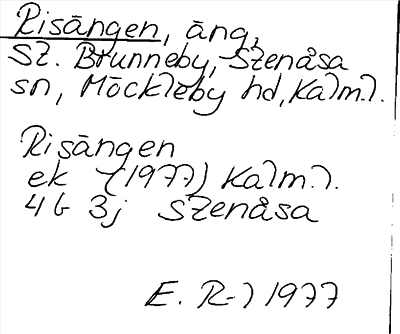 Risängen, äng,
St. Brunneby, Stenåsa
sn, Möckleby hd, Kalm.l.
Risängen
ek (1977) Kalm.l.
4 G 3j Stenåsa
E. R-l 1977